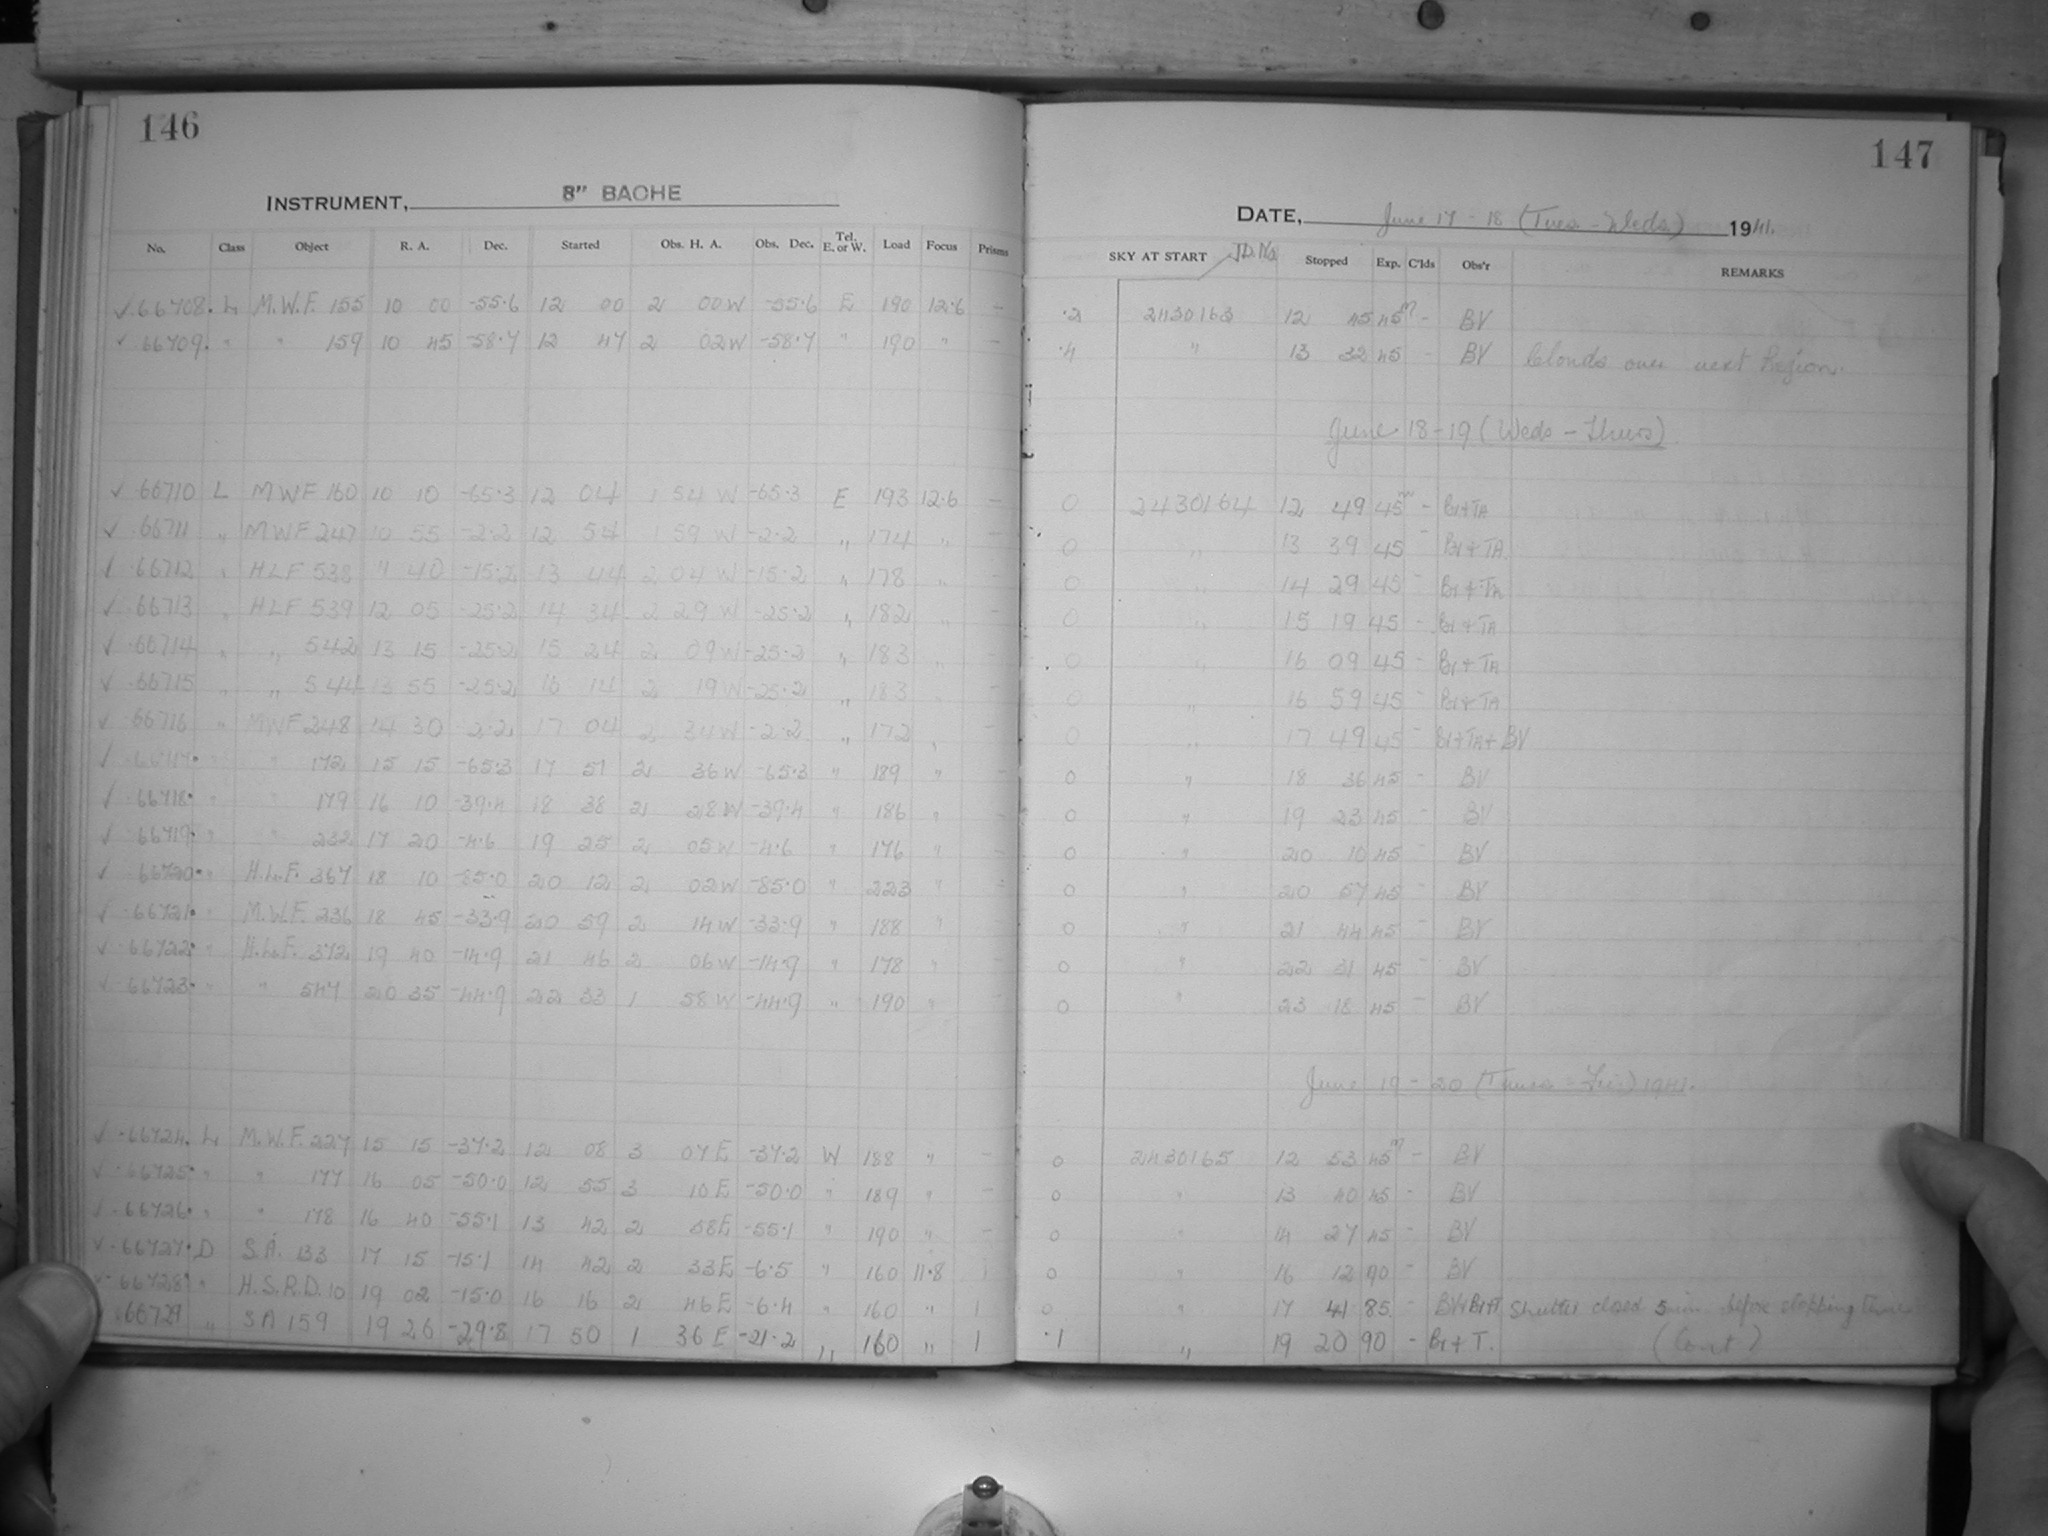 146
INSTRUMENT, 8" BACHE
No. Class Object R. A. Dec. Started Obs. H. A. Obs. Dec. Tel. E. or W. Load Focus Prisms
✓ 66708. L M.W.F. 155 10 00 -55.6 12 00 2 00W -55.6 E 190 12.6 -
✓ 66709. " " 159 10 45 -58.7 12 47 2 02W -58.7 " 190 " -
✓ 66710 L MWF 160 10 10 -65.3 12 04 1 54 W -65.3 E 193 12.6 -
✓ 66711 " MWF 247 10 55 -2.2 12 54 1 59 W -2.2 " 174 " -
✓ 66712 " HLF 538 11 40 -15.2 13 44 2 04 W -15.2 " 178 " -
✓ 66713 " HLF 539 12 05 -25.2 14 34 2 29 W -25.2 " 182 " -
✓ 66714 " " 542 13 15 -25.2 15 24 2 09W -25.2 " 183 " -
✓ 66715 " " 544 13 55 -25.2 16 14 2 19W -25.2 " 183 " -
✓ 66716 " MWF 248 14 30 -2.2 17 04 2 34W -2.2 " 172 " -
✓ 66717. " " 172 15 15 -65.3 17 51 2 36W -65.3 " 189 " -
✓ 66718. " " 179 16 10 -39.4 18 38 2 28W -39.4 " 186 " -
✓ 66719. " " 232 17 20 -4.6 19 25 2 05W -4.6 " 176 " -
✓ 66720. " H.L.F. 367 18 10 -85.0 20 12 2 02W -85.0 " 223 " -
✓ 66721. " M.W.F. 236 18 45 -33.9 20 59 2 14W -33.9 " 188 " -
✓ 66722. " H.L.F. 372 19 40 -14.9 21 46 2 06W -14.9 " 178 " -
✓ 66723. " " 547 20 35 -44.9 22 33 1 58W -44.9 " 190 " -
✓ 66724. L M.W.F. 227 15 15 -37.2 12 08 3 07E -37.2 W 188 " -
✓ 66725. " " 177 16 05 -50.0 12 55 3 10E -50.0 " 189 " -
✓ 66726. " " 178 16 40 -55.1 13 42 2 58E -55.1 " 190 " -
✓ 66727. D S.A. 133 17 15 -15.1 14 42 2 33E -6.5 " 160 11.8 1
✓ 66728. " H.S.R.D. 10 19 02 -15.0 16 16 2 46E -6.4 " 160 " 1
66729 " SA 159 19 26 -29.8 17 50 1 36 E -21.2 " 160 " 1
147
DATE, June 17 - 18 (Tues - Weds) 1941.
SKY AT START J.D. No. Stopped Exp. C'lds Obs'r REMARKS
.2 2430163 12 45 45m - BV
.4 " 13 32 45 - BV Clouds over next Region.
June 18-19 (Weds - Thurs)
0 2430164 12 49 45m - Br+TA
0 " 13 39 45 - Br+TA
0 " 14 29 45 - Br+TA
0 " 15 19 45 - Br+TA
0 " 16 09 45 - Br+TA
0 " 16 59 45 - Br+TA
0 " 17 49 45 - Br+TA+BV
0 " 18 36 45 - BV
0 " 19 23 45 - BV
0 " 20 10 45 - BV
0 " 20 57 45 - BV
0 " 21 44 45 - BV
0 " 22 31 45 - BV
0 " 23 18 45 - BV
June 19 - 20 (Thurs - Fri) 1941.
0 2430165 12 53 45m - BV
0 " 13 40 45 - BV
0 " 14 27 45 - BV
0 " 16 12 90 - BV
0 " 17 41 85 - Shutter closed 5 min. before stopping time
.1 " 19 20 90 - Br+T. (Cont)